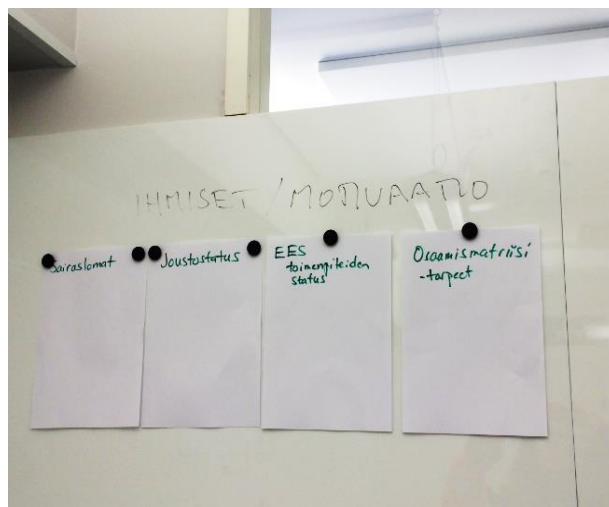 IHMISET / MOTIVAATIO
Sairaslomat
Joustostatus
EES
toimenpiteiden
status
Osaamismatriisi
-tarpeet